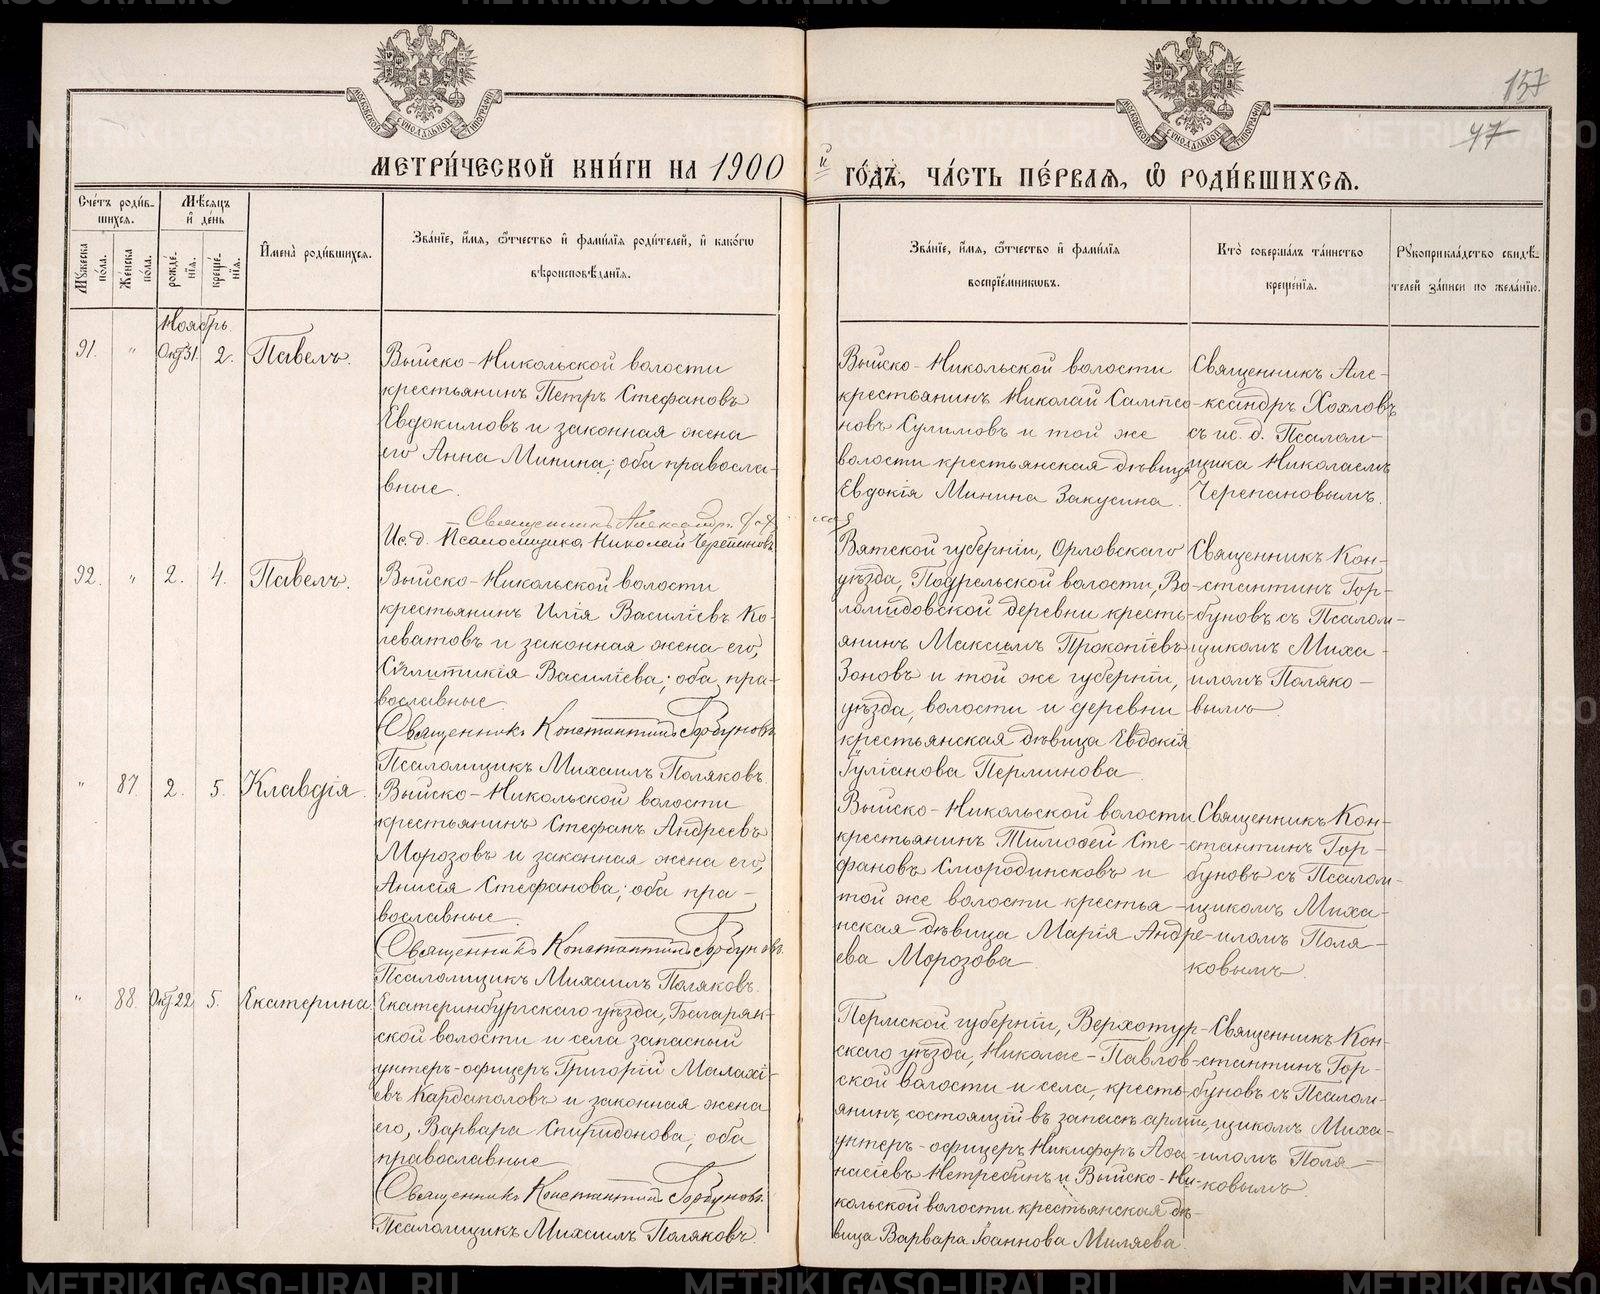 157
47
МЕТРИ́ЧЕСКОЙ КНИ́ГИ НА 1900 й ГО́ДЪ, ЧА́СТЬ ПЕ́РВАЯ, Ѽ РОДИ́ВШИХСЯ.
Сче́тъ роди́в-
шихся.
Мꙋжеска по́ла.
Же́нска по́ла.
Мѣ́сяцъ
и҆ де́нь
рожде́нїя.
креще́нїя.
И҆мена̀ роди́вшихся.
Зва́нїе, и҆́мя, ѻ҆́тчество и҆ фами́лїя роди́телей, и҆ како́гѡ
вѣроисповѣ́данїя.
Зва́нїе, и҆́мя, ѻ҆́тчество и҆ фами́лїя
воспрїе́мникѡвъ.
Кто̀ соверша́лъ та́инство
креще́нїя.
Рꙋкоприкла́дство свидѣ́-
телей за́писи по жела́нїю.
Ноябрь
91. " Окт 31. 2. Павелъ.
Выйско-Никольской волости
крестьянинъ Петръ Стефановъ
Евдокимовъ и законная жена
его Анна Минина; оба правосла-
вные.
Священникъ Александръ
Ис. д. Псаломщика Николай Черепановъ
Выйско-Никольской волости
крестьянинъ Николай Сампсо-
новъ Сулимовъ и той же
волости крестьянская дѣвица
Евдокія Минина Закусина.
Священникъ Але-
ксандръ Хохловъ
съ ис. д. Псалом-
щика Николаемъ
Черепановымъ.
92. " 2. 4. Павелъ.
Выйско-Никольской волости
крестьянинъ Илія Василіевъ Ко-
леватовъ и законная жена его,
Сѵнклитикія Василіева; оба пра-
вославные.
Священникъ Константинъ Горбуновъ
Псаломщикъ Михаилъ Поляковъ.
Вятской губерніи, Орловскаго
уѣзда, Подрельской волости,
деревни кресть-
янинъ Максимъ Прокопіевъ
Зоновъ и той же губерніи,
уѣзда, волости и деревни
крестьянская дѣвица Евдокія
Іуліанова Перминова.
Священникъ Кон-
стантинъ Гор-
буновъ съ Псалом-
щикомъ Миха-
иломъ Поляко-
вымъ.
" 87. 2. 5. Клавдія.
Выйско-Никольской волости
крестьянинъ Стефанъ Андреевъ
Морозовъ и законная жена его,
Анисія Стефанова; оба пра-
вославные.
Священникъ Константинъ Горбуновъ.
Псаломщикъ Михаилъ Поляковъ.
Выйско-Никольской волости
крестьянинъ Тимоѳей Сте-
фановъ Смородинсковъ и
той же волости крестья-
нская дѣвица Марія Андре-
ева Морозова
Священникъ Кон-
стантинъ Гор-
буновъ съ Псалом-
щикомъ Миха-
иломъ Поля-
ковымъ.
" 88. Окт 22 5. Екатерина.
Екатеринбургскаго уѣзда, Багаряк-
ской волости и села запасный
унтеръ-офицеръ Григорій Малахі-
евъ Кардаполовъ и законная жена
его, Варвара Спиридонова; оба
православные
Священникъ Константинъ Горбуновъ.
Псаломщикъ Михаилъ Поляковъ
Пермской губерніи, Верхотур-
скаго уѣзда, Николае-Павлов-
ской волости и села, кресть-
янинъ, состоящій въ запасѣ арміи,
унтеръ-офицеръ Никифоръ Аѳа-
насіевъ Нетребинъ и Выйско-Ни-
кольской волости крестьянская дѣ-
вица Варвара Іоаннова Миляева.
Священникъ Кон-
стантинъ Гор-
буновъ съ Псалом-
щикомъ Миха-
иломъ Поля-
ковымъ.
METRIKI.GASO-URAL.RU